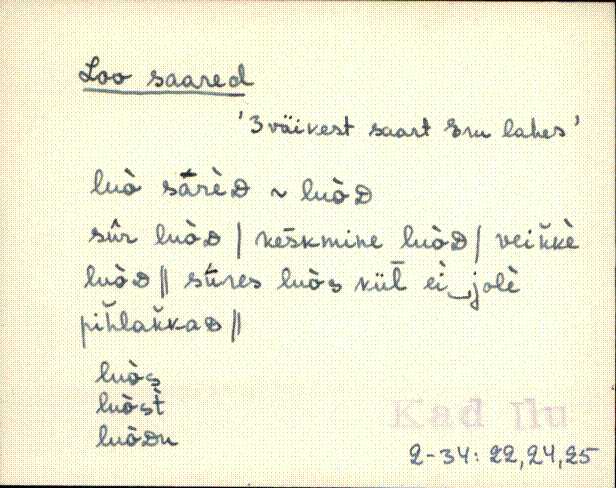 Loo saared
'3 väikest saart Eru lahes'
luò sā̀rèᴅ ~ luòᴅ
sûr luòᴅ | keškmine luòᴅ | veik̆kè
luòᴅ || sū̀res luòs küľ eì‿jolè
pih̆lak̆kaᴅ ||
luòs
luòst̀
luòᴅu
Kad Ilu
2-34: 22, 24, 25